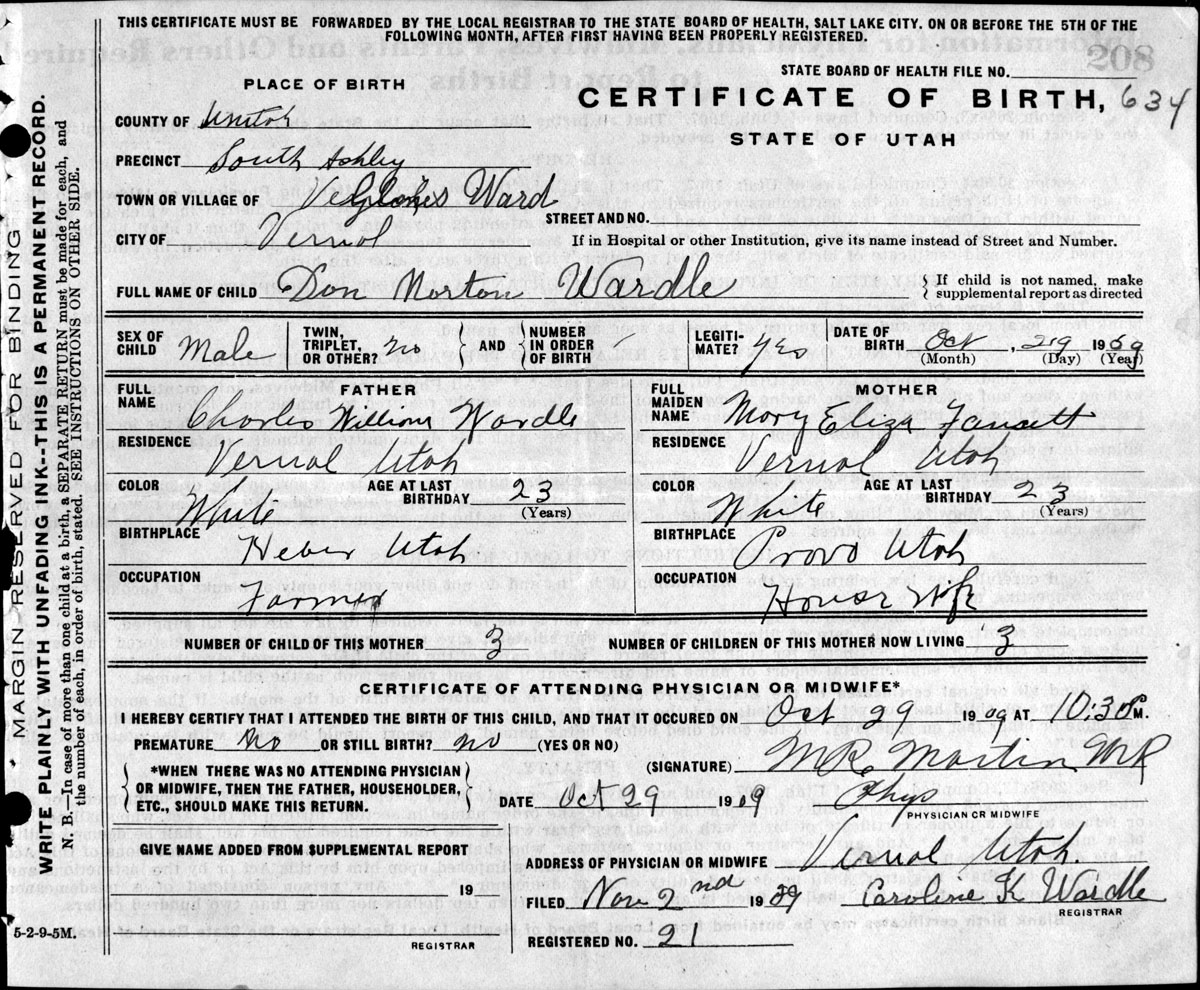 THIS CERTIFICATE MUST BE FORWARDED BY THE LOCAL REGISTRAR TO THE STATE BOARD OF HEALTH, SALT LAKE CITY. ON OR BEFORE THE 5TH OF THE
FOLLOWING MONTH, AFTER FIRST HAVING BEEN PROPERLY REGISTERED.
208
STATE BOARD OF HEALTH FILE NO.
PLACE OF BIRTH
CERTIFICATE OF BIRTH, 634
STATE OF UTAH
COUNTY OF
PRECINCT South Ashley
TOWN OR VILLAGE OF Ward
STREET AND NO.
CITY OF Vernal
If in Hospital or other Institution, give its name instead of Street and Number.
FULL NAME OF CHILD Don Morton Wardle
If child is not named, make
supplemental report as directed
SEX OF CHILD Male
TWIN, TRIPLET, OR OTHER? no
AND
NUMBER IN ORDER OF BIRTH
LEGITI-MATE? yes
DATE OF BIRTH Oct, 29 1909
(Month) (Day) (Year)
FATHER
FULL NAME Charles William Wardle
RESIDENCE
Vernal Utah
COLOR White
AGE AT LAST BIRTHDAY 23
(Years)
BIRTHPLACE
Heber Utah
OCCUPATION
Farmer
MOTHER
FULL MAIDEN NAME Mary Eliza Fausett
RESIDENCE
Vernal Utah
COLOR White
AGE AT LAST BIRTHDAY 23
(Years)
BIRTHPLACE
Provo Utah
OCCUPATION
House Wife
NUMBER OF CHILD OF THIS MOTHER 3
NUMBER OF CHILDREN OF THIS MOTHER NOW LIVING 3
CERTIFICATE OF ATTENDING PHYSICIAN OR MIDWIFE*
I HEREBY CERTIFY THAT I ATTENDED THE BIRTH OF THIS CHILD, AND THAT IT OCCURED ON Oct 29 1909 AT 10:30 M.
PREMATURE No OR STILL BIRTH? no (YES OR NO)
(SIGNATURE) Martin
*WHEN THERE WAS NO ATTENDING PHYSICIAN
OR MIDWIFE, THEN THE FATHER, HOUSEHOLDER,
ETC., SHOULD MAKE THIS RETURN.
DATE Oct 29 1909 Phys
PHYSICIAN OR MIDWIFE
GIVE NAME ADDED FROM SUPPLEMENTAL REPORT
19
REGISTRAR
ADDRESS OF PHYSICIAN OR MIDWIFE Vernal Utah.
FILED Nov 2nd 1909 Caroline K Wardle
REGISTRAR
REGISTERED NO. 21
5-2-9-5M.
MARGIN RESERVED FOR BINDING
WRITE PLAINLY WITH UNFADING INK--THIS IS A PERMANENT RECORD.
N. B.—In case of more than one child at a birth, a SEPARATE RETURN must be made for each, and
the number of each, in order of birth, stated. SEE INSTRUCTIONS ON OTHER SIDE.